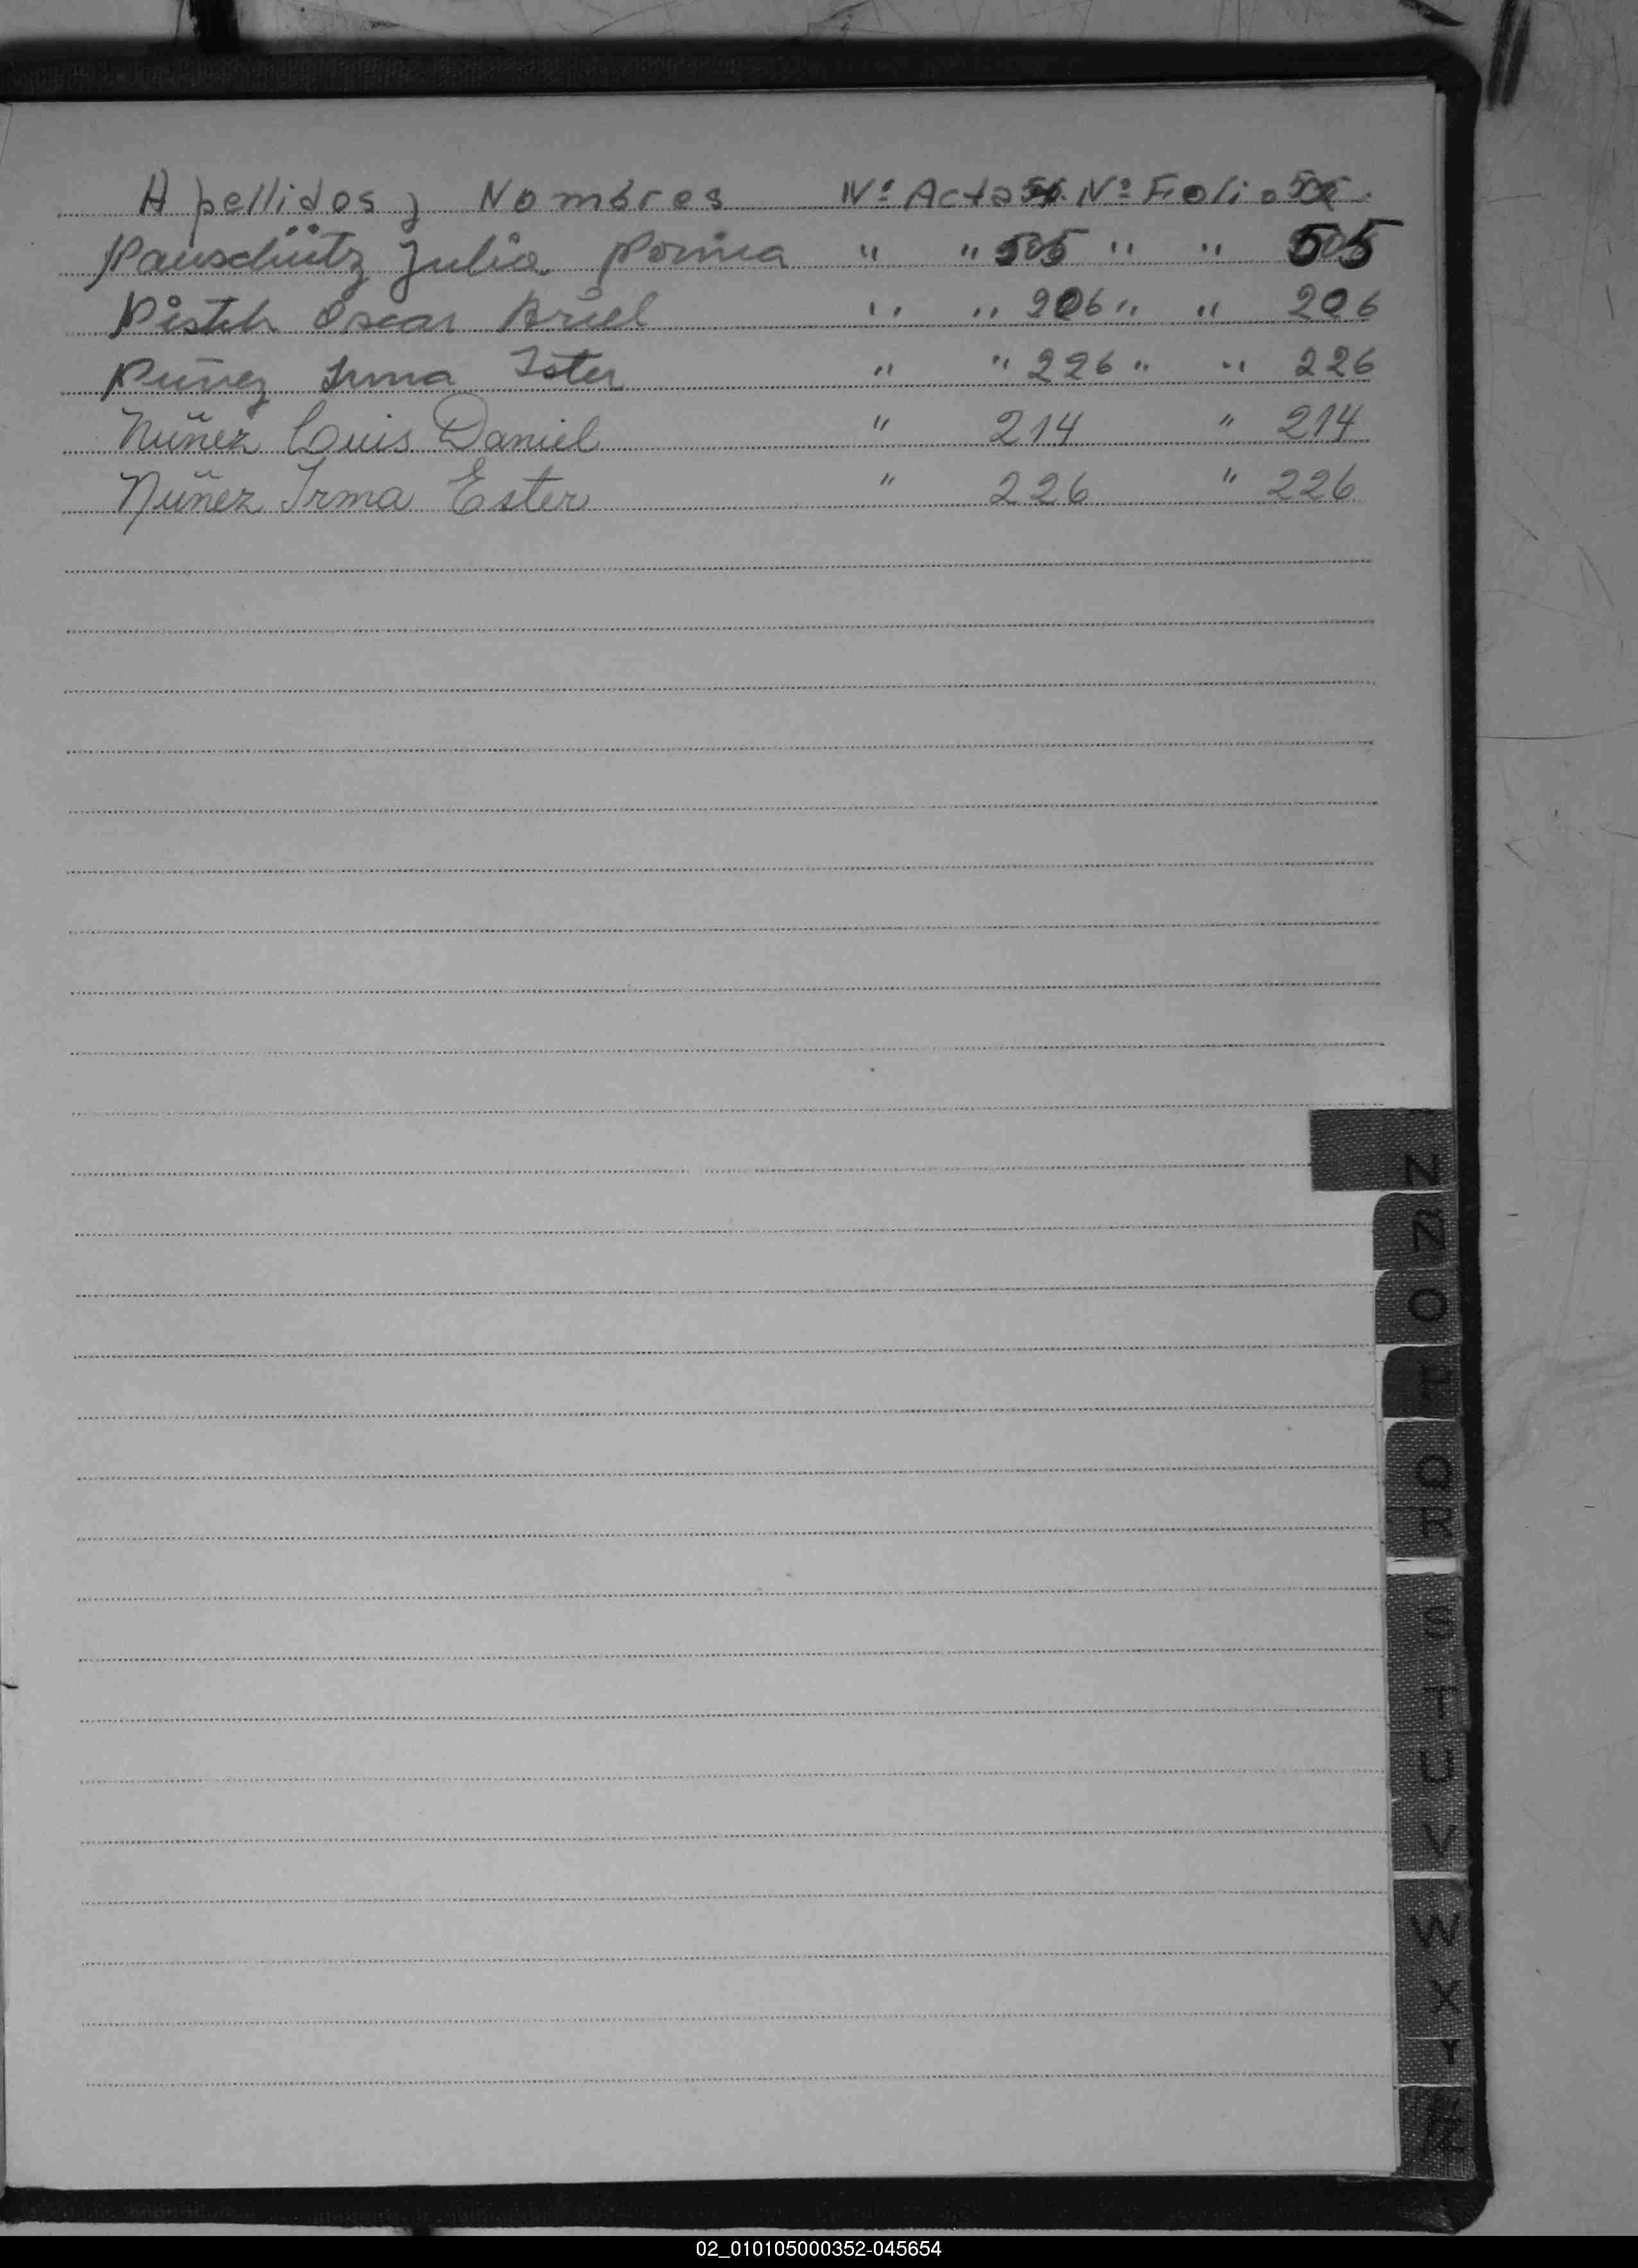 Apellidos y Nombres Nº Acta Nº Folio
Nauschütz Julia Norma " " 505 " " 505
Nistch Oscar Ariel " " 206 " " 206
Nuñez Irma Ister " " 226 " " 226
Nuñez Louis Daniel " 214 " 214
Nuñez Irma Ester " 226 " 226
N
Ñ
O
P
Q
R
S
T
U
V
W
X
Y
Z
02_010105000352-045654